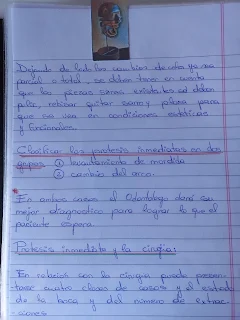 Dejando de lado los cambios de esta ya sea
parcial o total, se deben tener en cuenta
que las piezas sanas existentes se deben
pulir, rebasar quitar sarro y placa para
que se vea en condiciones estéticas
y funcionales.
Clasificar las protesis inmediatas en dos
grupos ① levantamiento de mordida
② cambio del arco.
En ambos casos el Odontólogo dará su
mejor diagnostico para lograr lo que el
paciente espera
Protesis inmediata y la cirugia:
En relacion con la cirugia puede presen-
tarse cuatro clases de casos y el estado
de la boca y del número de extrac-
ciones